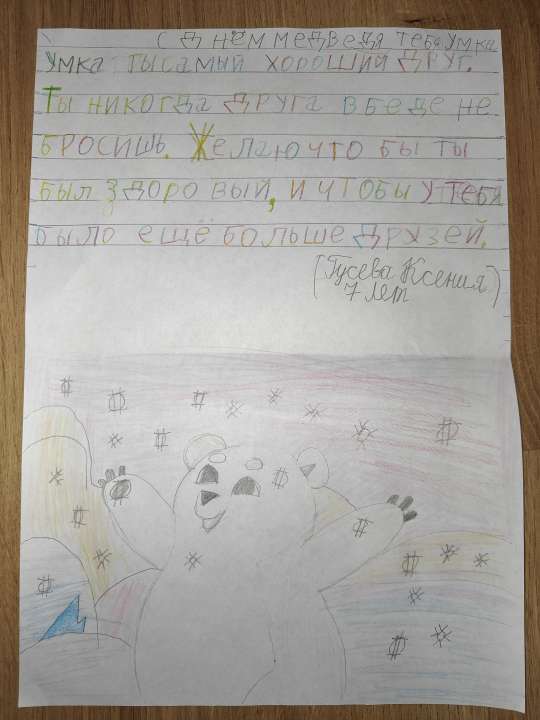 С днём медведя тебя Умка
Умка ты самый хороший друг.
Ты никогда друга в беде не
бросишь. Желаю что бы ты
был здоровый, и чтобы у тебя
было ещё больше друзей.
(Гусева Ксения
7 лет)